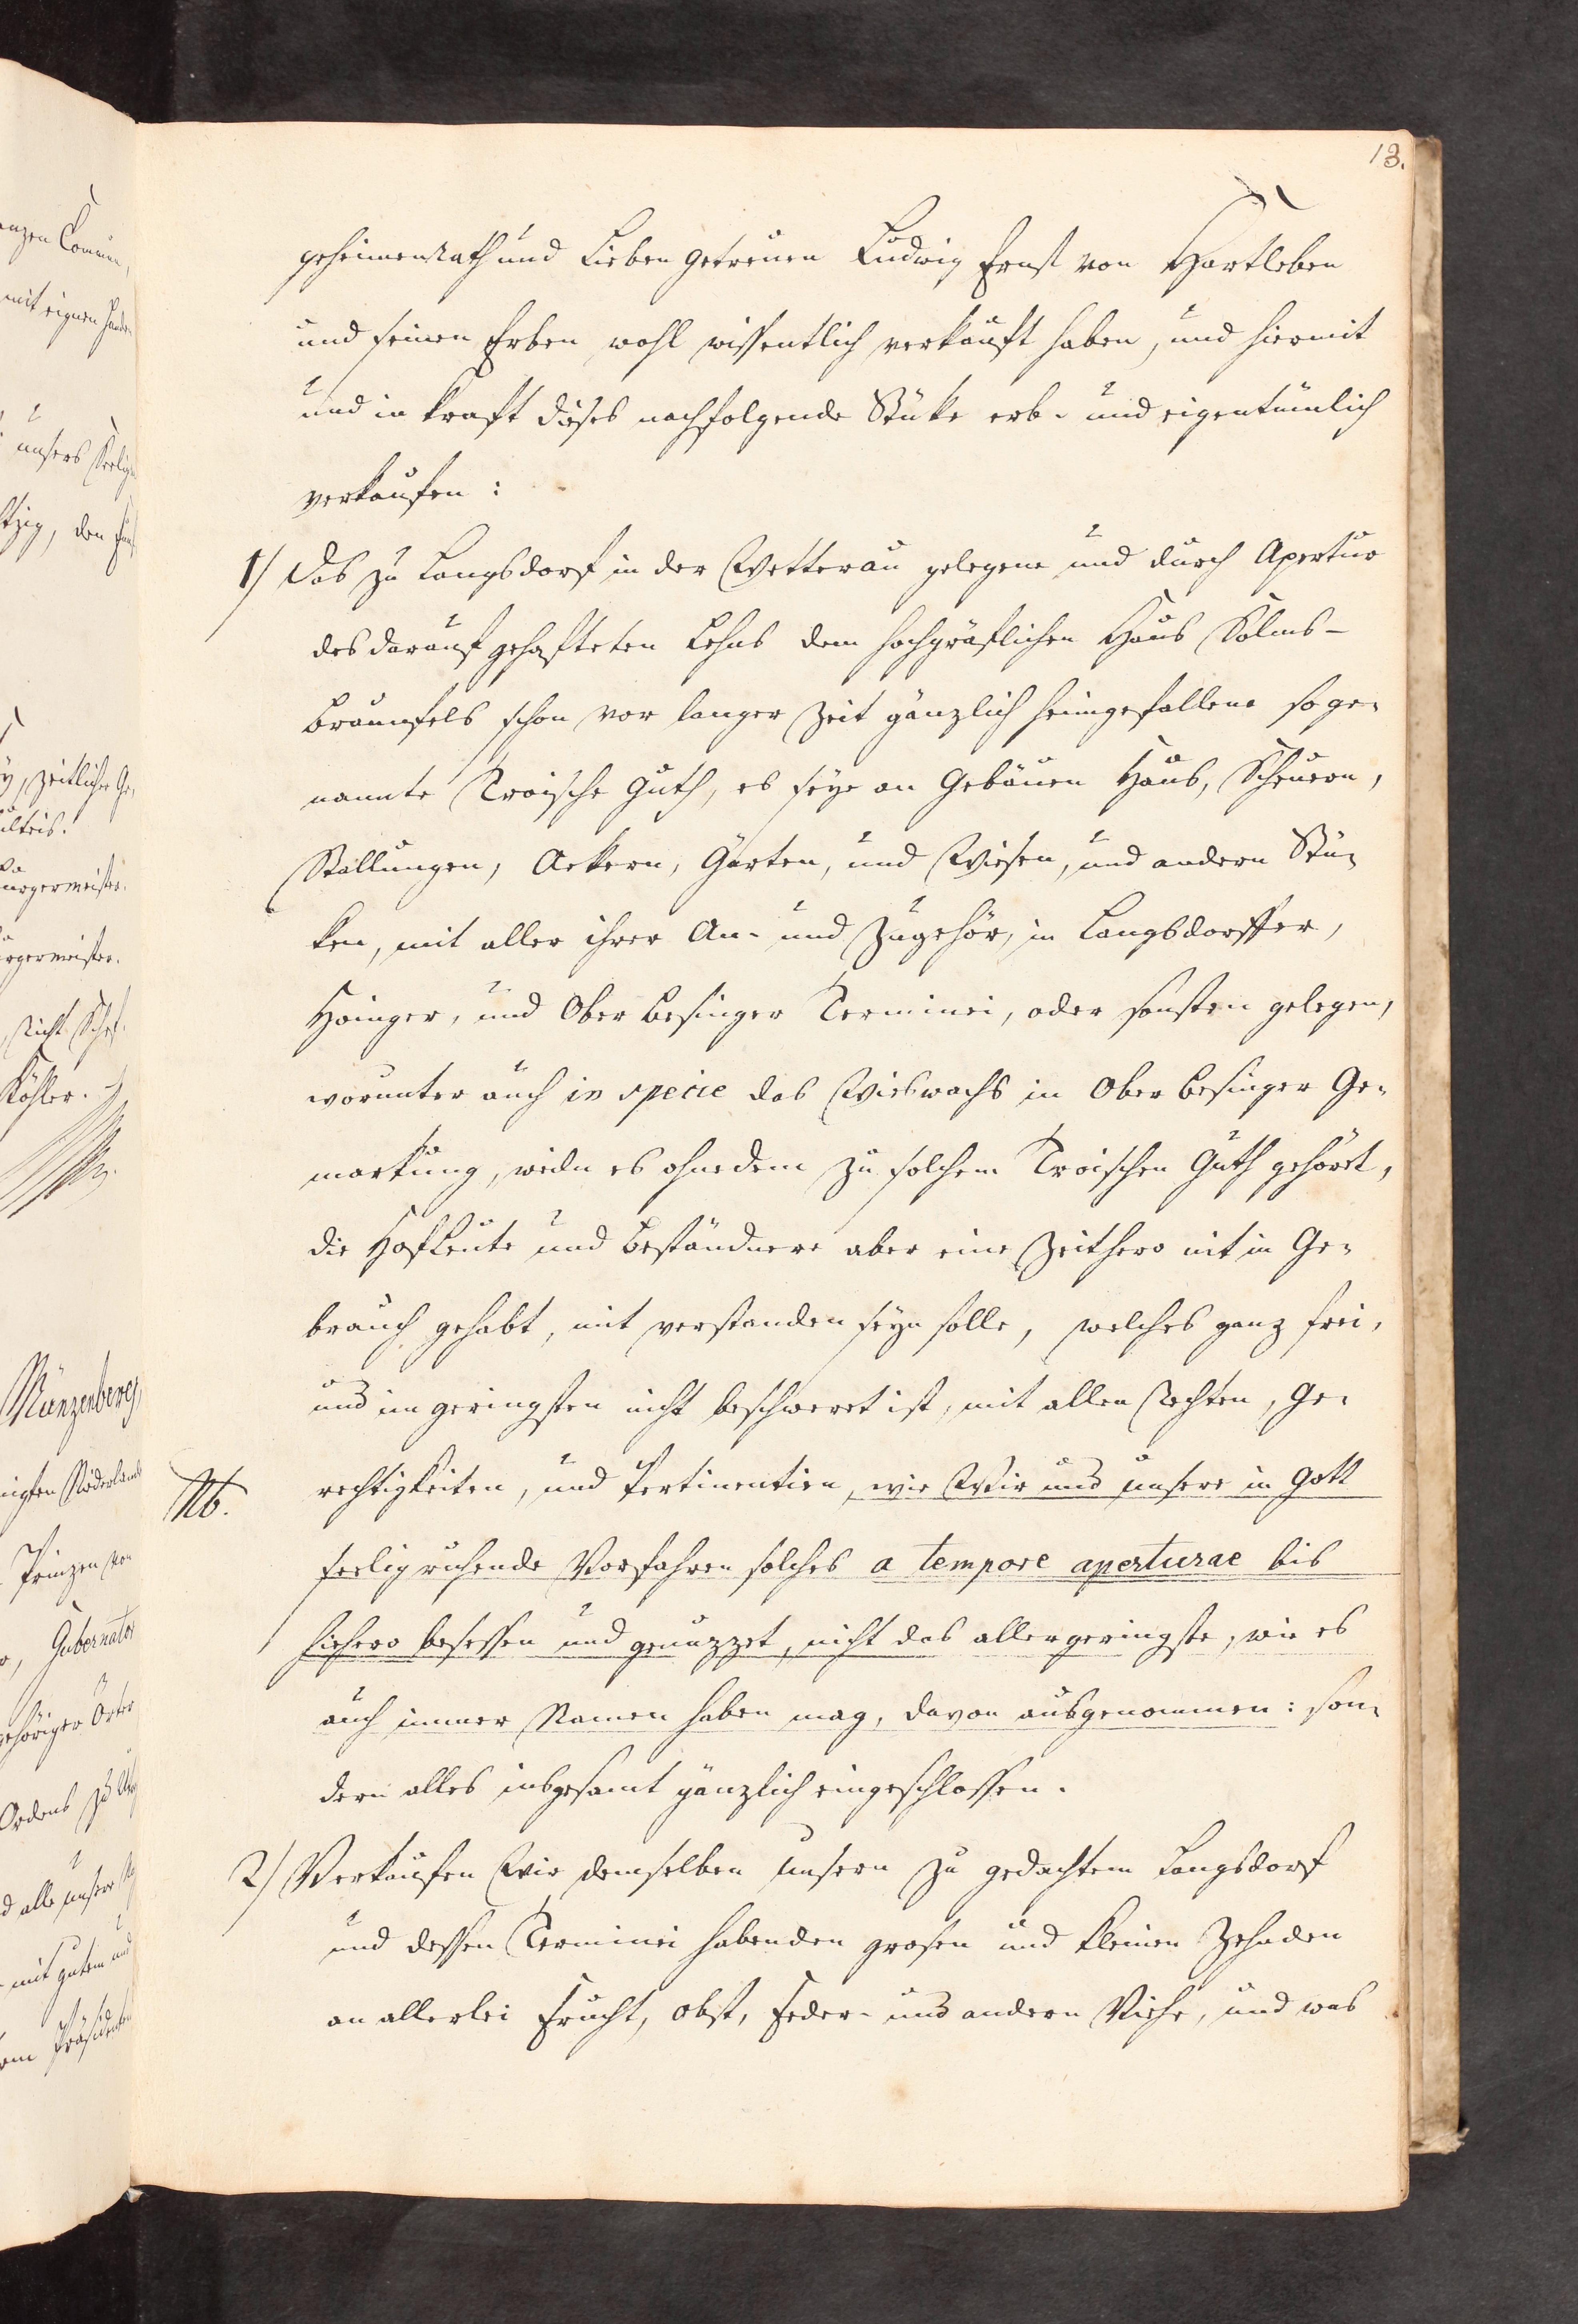 13.
geheimenrath und Lieben getreuen Ludwig Ernst von Hartleben
und seinen Erben wohl wissentlich verkauft haben, und hiermit
und in kraft dieses nachfolgende Stüke erb- und eigentümlich
verkaufen:
1) Das zu Langsdorf in der Wetterau gelegene und durch Apertur
des darauf gehafteten Lehns dem hochgräflichen Haus Solms-
braunfels schon vor langer Zeit gänzlich heimgefallene so ge-
nannte Troische Guth, es seye an Gebäuen Haus, Scheuern,
Stallungen, Aekern, Gärten, und Wiesen, und andern Stü-
ken, mit aller ihrer An- und Zugehör, in Langsdorffer,
Hoinger, und Ober besinger Terminei, oder sonsten gelegen,
worunter auch in specie das Wieswachs in Ober besinger Ge-
markung, weiln es ohnedem zu solchem Troischen Guth gehöret,
die Hofleute und Beständnere aber eine Zeithero nit in Ge-
brauch gehabt, mit verstanden seyn solle, welches ganz frei,
und im geringsten nicht beschweret ist, mit allen Rechten, Ge-
rechtigkeiten, und Pertinentien, wie Wir und unsere in Gott
Nb.
seelig ruhende Vorfahren solches a tempore aperturae bis
hiehero besessen und genuzzet, nicht das allergeringste, wie es
auch immer Namen haben mag, davon ausgenommen: son-
dern alles insgesamt gänzlich eingeschlossen.
2) Verkaufen Wir demselben unsern zu gedachtem Langsdorf
und dessen Terminei habenden grosen und kleinen Zehnden
an allerlei Frucht, Obst, Feder- und andern Viehe, und was